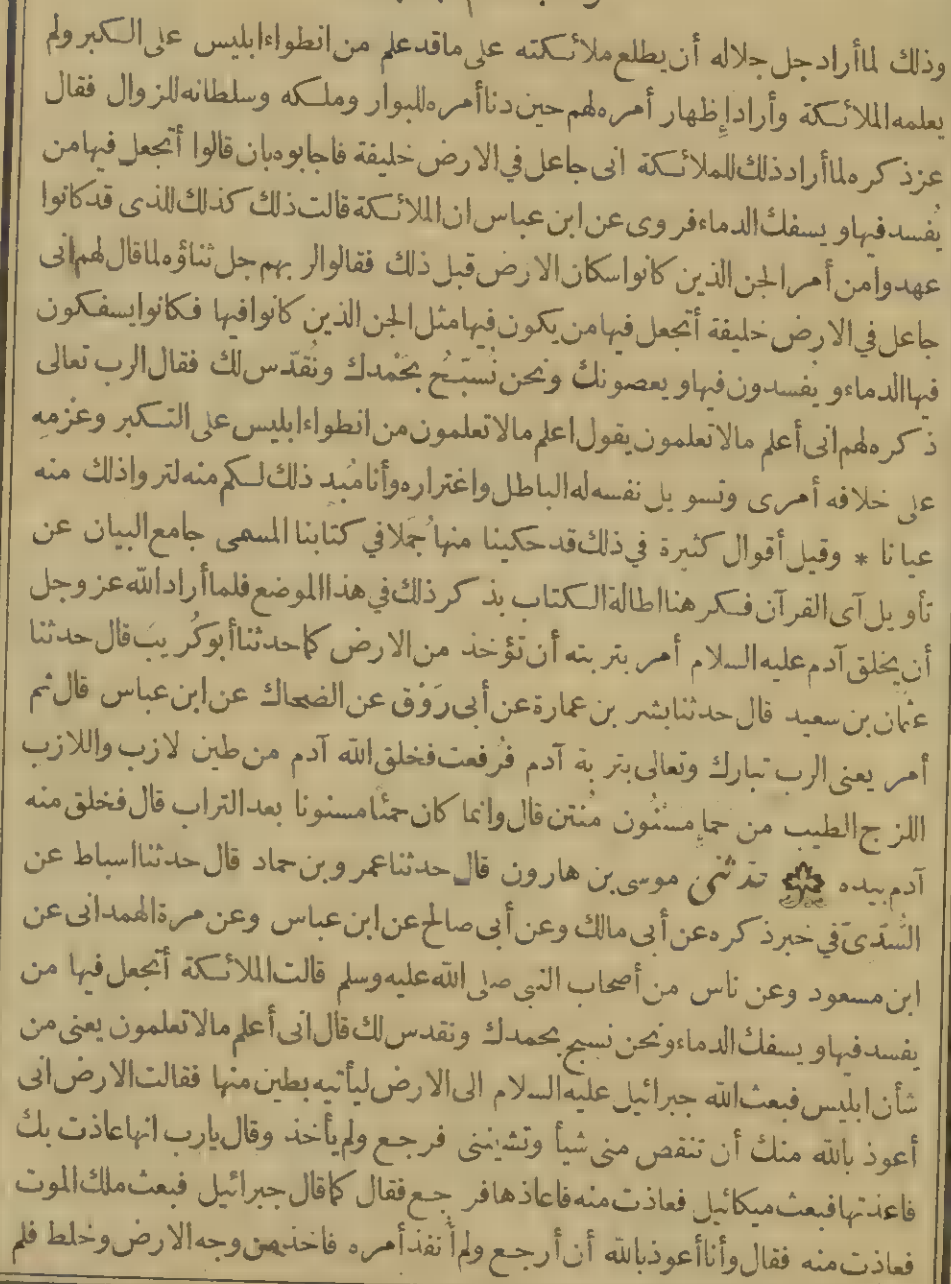 وذلك لما أراد جل جلاله أن يطلع ملائكته على ما قد علم من انطواء ابليس على الكبر ولم
يعلمه الملائكة وأراد إظهار أمره لهم حين دنا أمره للبوار وملكه وسلطانه للزوال فقال
عز ذكره لما أراد ذلك للملائكة انى جاعل في الارض خليفة فاجابوه بان قالوا أتجعل فيها من
يُفسد فيها ويسفك الدماء فروى عن ابن عباس ان الملائكة قالت ذلك كذلك للذى قد كانوا
عهدوا من أمر الجن الذين كانوا سكان الارض قبل ذلك فقالوا لربهم جل ثناؤه لما قال لهم انى
جاعل في الارض خليفة أتجعل فيها من يكون فيها مثل الجن الذين كانوا فيها فكانوا يسفكون
فيها الدماء ويفسدون فيها ويعصونك ونحن نُسَبِّحُ بحَمْدك ونُقدّس لك فقال الرب تعالى
ذكره لهم انى أعلم مالا تعلمون يقول اعلم مالا تعلمون من انطواء ابليس على التكبر وعَزْمِه
على خلافه أمرى وتسويل نفسه له الباطل واغتراره وأنا مُبد ذلك لكم منه لتروا ذلك منه
عيانا * وقيل أقوال كثيرة في ذلك قد حكينا منها جُمَلا في كتابنا المسمى جامع البيان عن
تأويل آى القرآن فكر هنا اطالة الكتاب بذكر ذلك في هذا الموضع فلما أراد الله عز وجل
أن يخلق آدم عليه السلام أمر بتربته أن تؤخذ من الارض كما حدثنا أبو كُرَيبَ قال حدثنا
عثمان بن سعيد قال حدثنا بشر بن عمارة عن أبى رَوْق عن الضحاك عن ابن عباس قال ثم
أمر يعنى الرب تبارك وتعالى بتربة آدم فرُفعت فخلق الله آدم من طين لازب واللازب
اللزج الطيب من حمإ مسنُون مُنتن قال وانما كان حمئا مسنونا بعد التراب قال فخلق منه
آدم بيده حدثنى موسى بن هارون قال حدثنا عمرو بن حماد قال حدثنا اسباط عن
السُّدّىّ في خبر ذكره عن أبى مالك وعن أبى صالح عن ابن عباس وعن مرة الهمدانى عن
ابن مسعود وعن ناس من أصحاب النبي صلى الله عليه وسلم قالت الملائكة أتجعل فيها من
يفسد فيها ويسفك الدماء ونحن نسبح بحمدك ونقدس لك قال انى أعلم مالا تعلمون يعنى من
شأن ابليس فبعث الله جبرائيل عليه السلام الى الارض ليأتيه بطين منها فقالت الارض انى
أعوذ بالله منك أن تنقص منى شيأ وتشيننى فرجع ولم يأخذ وقال يارب انها عاذت بك
فاعذتها فبعث ميكائيل فعاذت منه فاعاذها فرجع فقال كما قال جبرائيل فبعث ملك الموت
فعاذت منه فقال وأنا أعوذ بالله أن أرجع ولم أنفذ أمره فاخذ من وجه الارض وخلط فلم